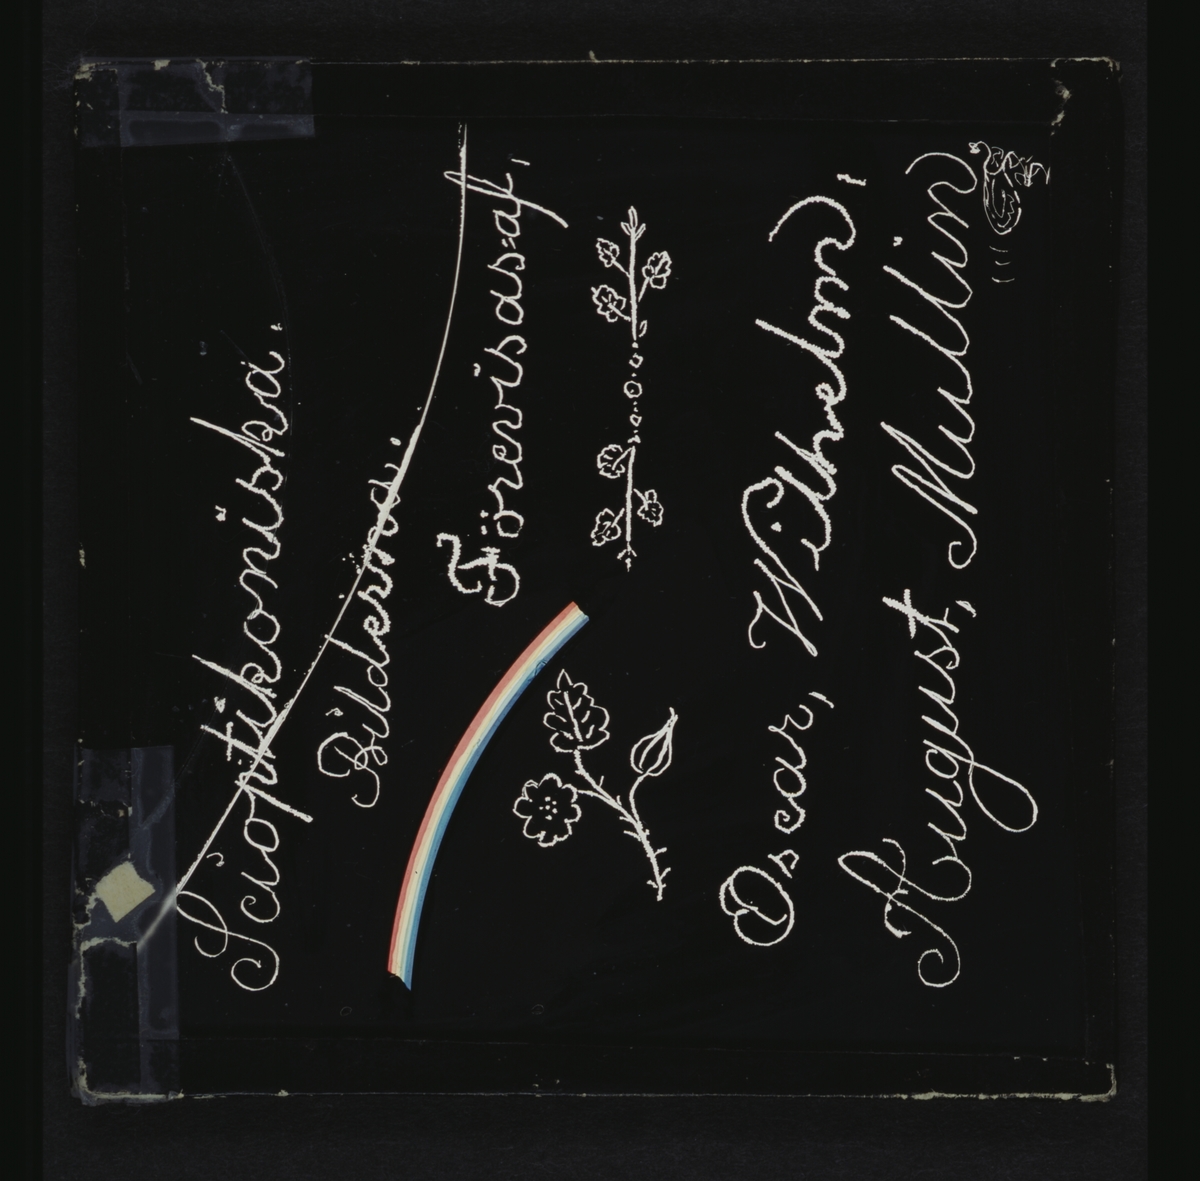 Scioptikoniska.
Bilderna.
Förevisas af,
Oscar, Wilhelm,
August, Mullin